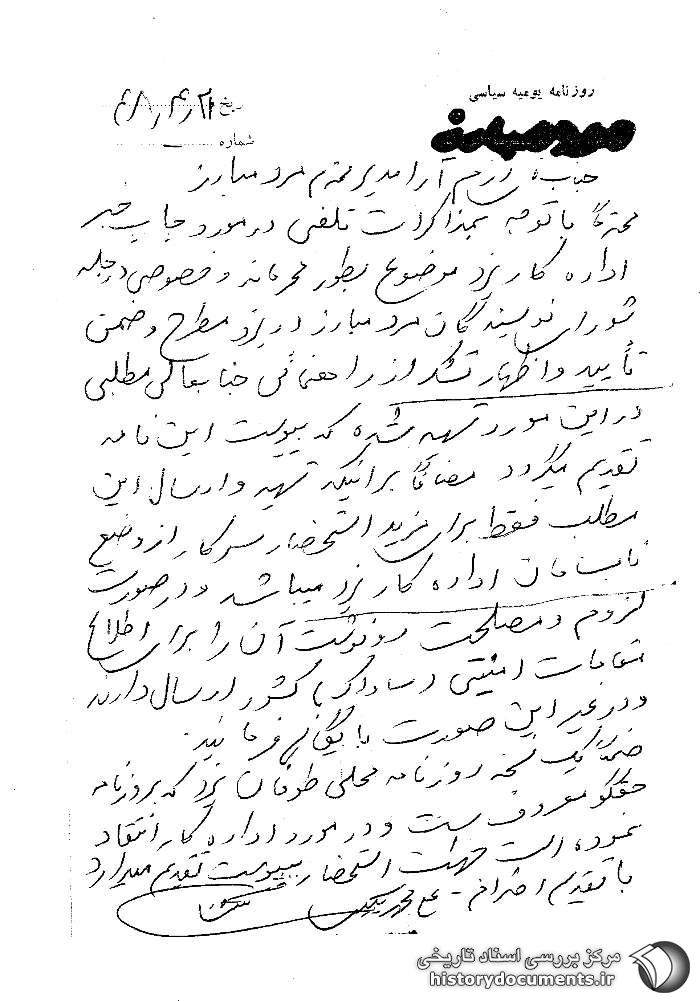 روزنامه یومیه سیاسی
مرد مبارز
تاریخ ۴۸٫۴٫۲۱
شماره
جناب رزم آرا مدیر محترم مرد مبارز
محترماً با توجه بمذاکرات تلفنی در مورد چاپ خبر
اداره کار یزد موضوع بطور محرمانه و خصوصی در جلسه
شورای نویسندگان مرد مبارز در یزد مطرح و ضمن
تأیید و اظهار تشکر از راهنمائی جنابعالی مطلبی
در این مورد تهیه شده که بپیوست این نامه
تقدیم میگردد مضافاً بر اینکه تهیه و ارسال این
مطلب فقط برای مزید استحضار سرکار از وضع
نابسامان اداره کار یزد میباشد و در صورت
لزوم و مصلحت رونوشت آن را برای اطلاع
مقامات امنیتی (ساواک) کشور ارسال دارند
و در غیر این صورت بایگانی فرمائید.
ضمناً یک نسخه روزنامه محلی طوفان یزد که بروزنامه
حقگو معروفست و در مورد اداره کار انتقاد
نموده است جهت استحضار بپیوست تقدیم میدارد
با تقدیم احترام - محمد
مرکز بررسی اسناد تاریخی
historydocuments.ir